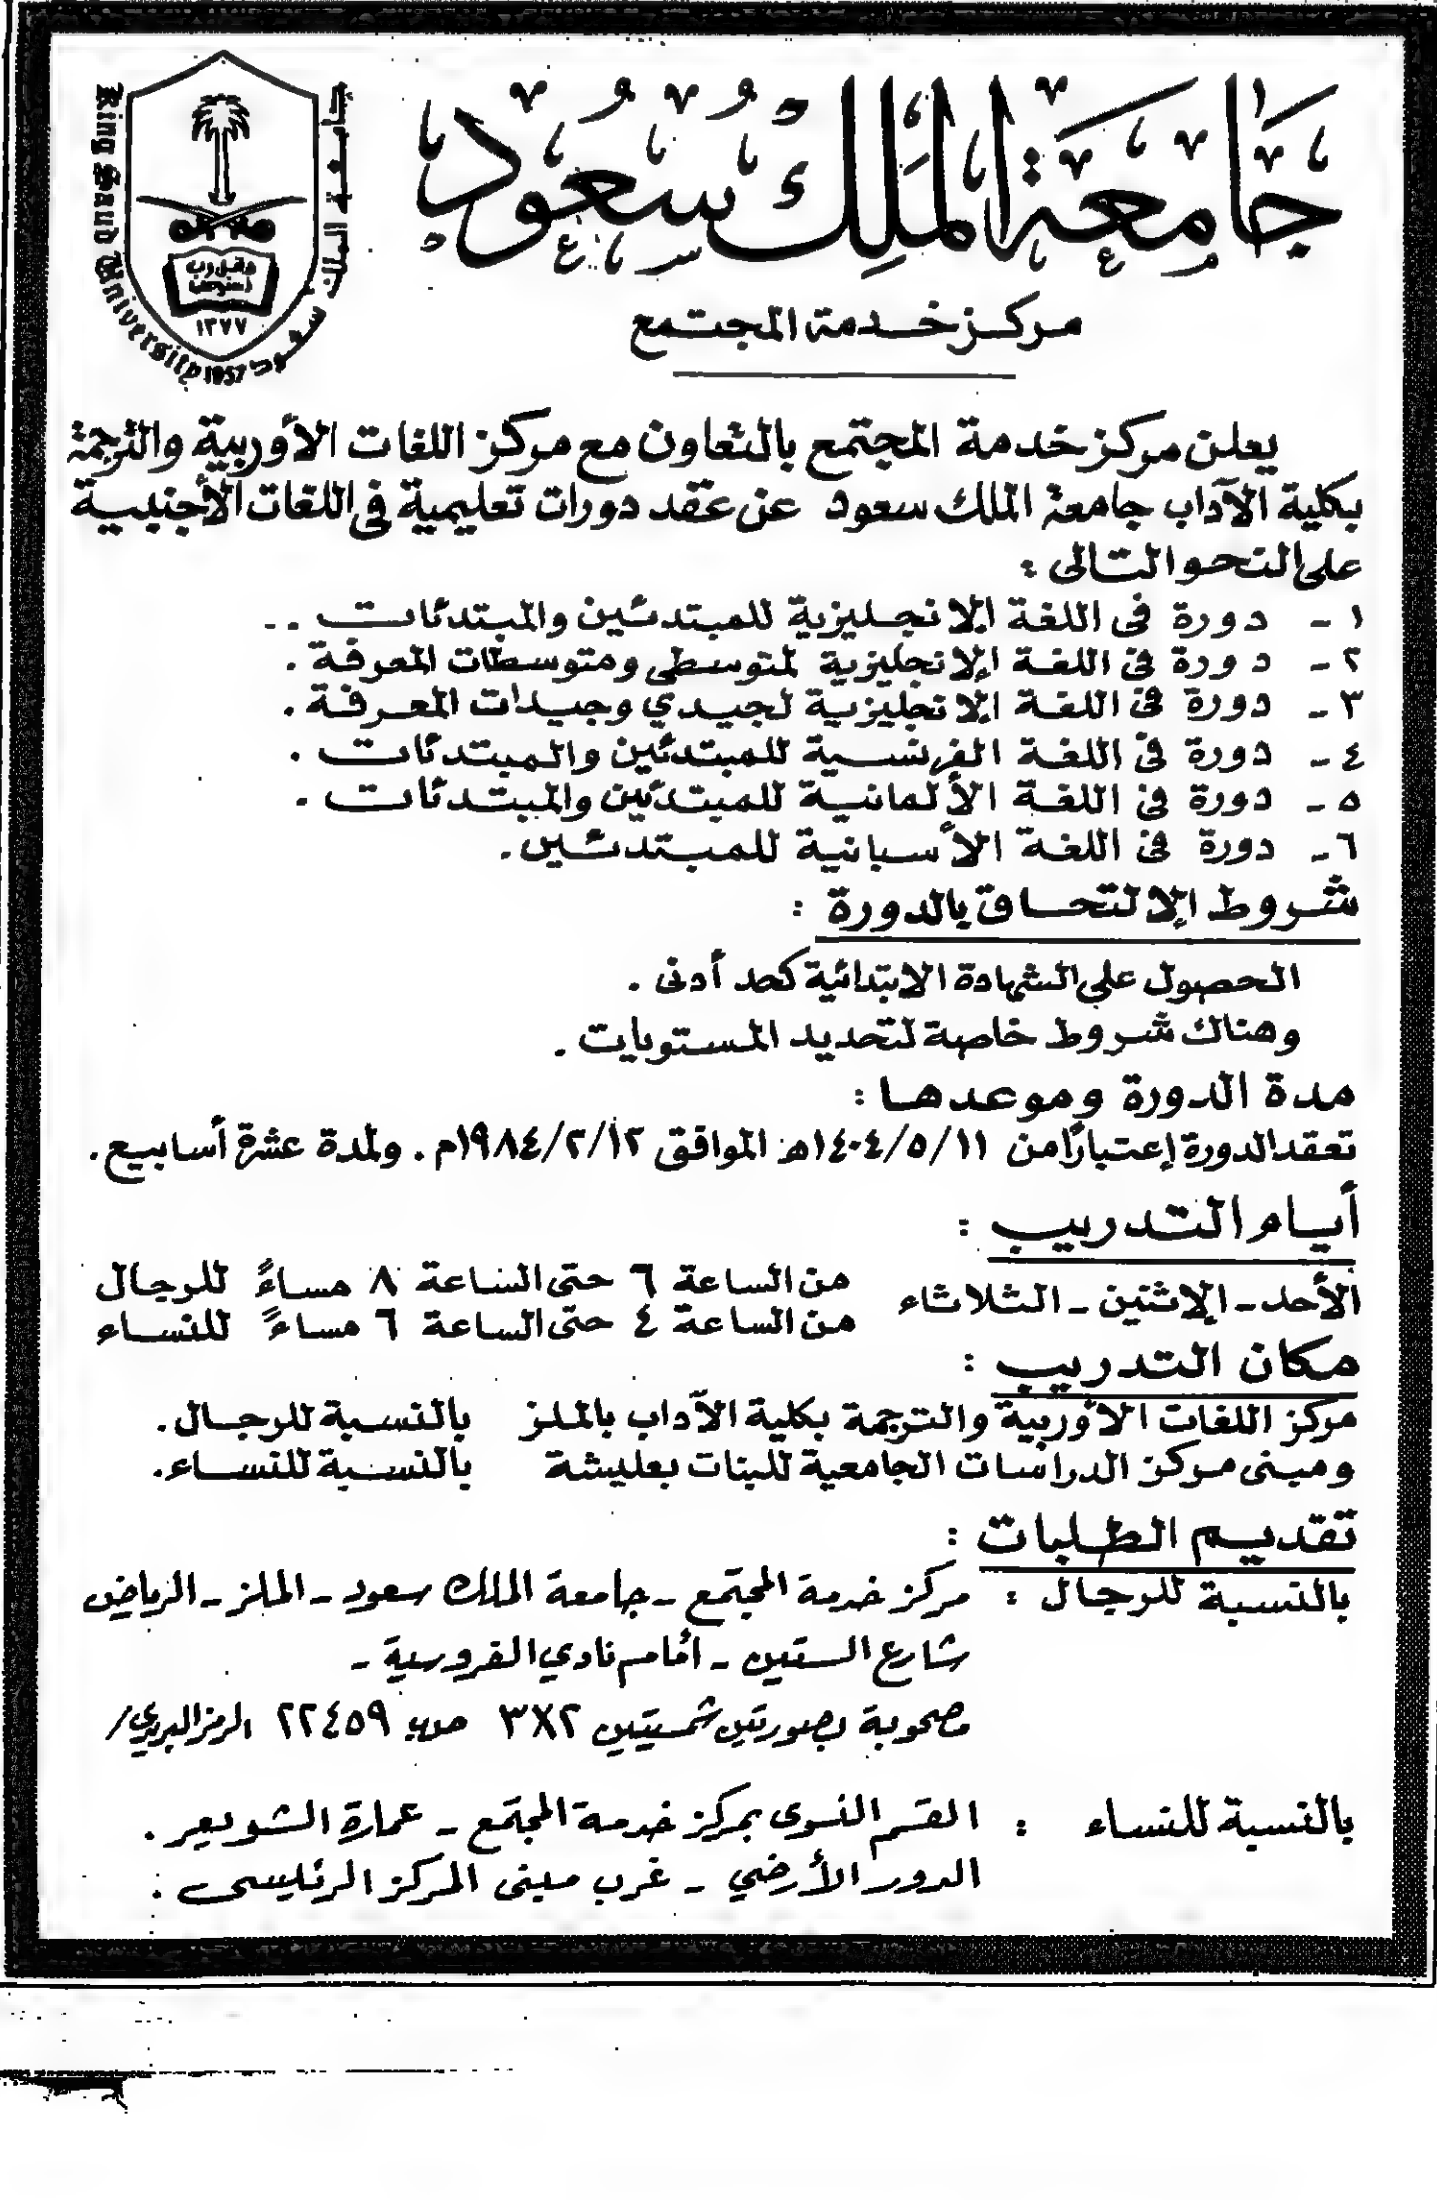 جامعة الملك سعود
King Saud University
جامعة الملك سعود
١٣٧٧
1957
مركز خدمة المجتمع
يعلن مركز خدمة المجتمع بالتعاون مع مركز اللغات الأوربية والترجمة
بكلية الآداب جامعة الملك سعود عن عقد دورات تعليمية في اللغات الأجنبية
على النحو التالى :
١ - دورة فى اللغة الإنجليزية للمبتدئين والمبتدئات ..
٢ - دورة فى اللغة الإنجليزية لمتوسطي ومتوسطات المعرفة .
٣ - دورة فى اللغة الإنجليزية لجيدي وجيدات المعرفة .
٤ - دورة فى اللغة الفرنسية للمبتدئين والمبتدئات .
٥ - دورة فى اللغة الألمانية للمبتدئين والمبتدئات .
٦ - دورة فى اللغة الأسبانية للمبتدئين .
شروط الإلتحاق بالدورة :
الحصول على الشهادة الابتدائية كحد أدنى .
وهناك شروط خاصة لتحديد المستويات .
مدة الدورة وموعدها :
تعقد الدورة إعتباراً من ١٤٠٤/٥/١١هـ الموافق ١٩٨٤/٢/١٢م . ولمدة عشرة أسابيع .
أيام التدريب :
الأحد - الإثنين - الثلاثاء
من الساعة ٦ حتى الساعة ٨ مساءً للرجال
من الساعة ٤ حتى الساعة ٦ مساءً للنساء
مكان التدريب :
مركز اللغات الأوربية والترجمة بكلية الآداب بالملز بالنسبة للرجال .
ومبنى مركز الدراسات الجامعية للبنات بعليشة بالنسبة للنساء .
تقديم الطلبات :
بالنسبة للرجال : مركز خدمة المجتمع - جامعة الملك سعود - الملز - الرياض
شارع الستين - أمام نادي الفروسية -
مصحوبة بصورتين شمسيتين ٣X٢ ص.ب ٢٢٤٥٩ الرمز البريدي /
بالنسبة للنساء : القسم النسوى بمركز خدمة المجتمع - عمارة الشويعر .
الدور الأرضي - غرب مبنى المركز الرئيسى .